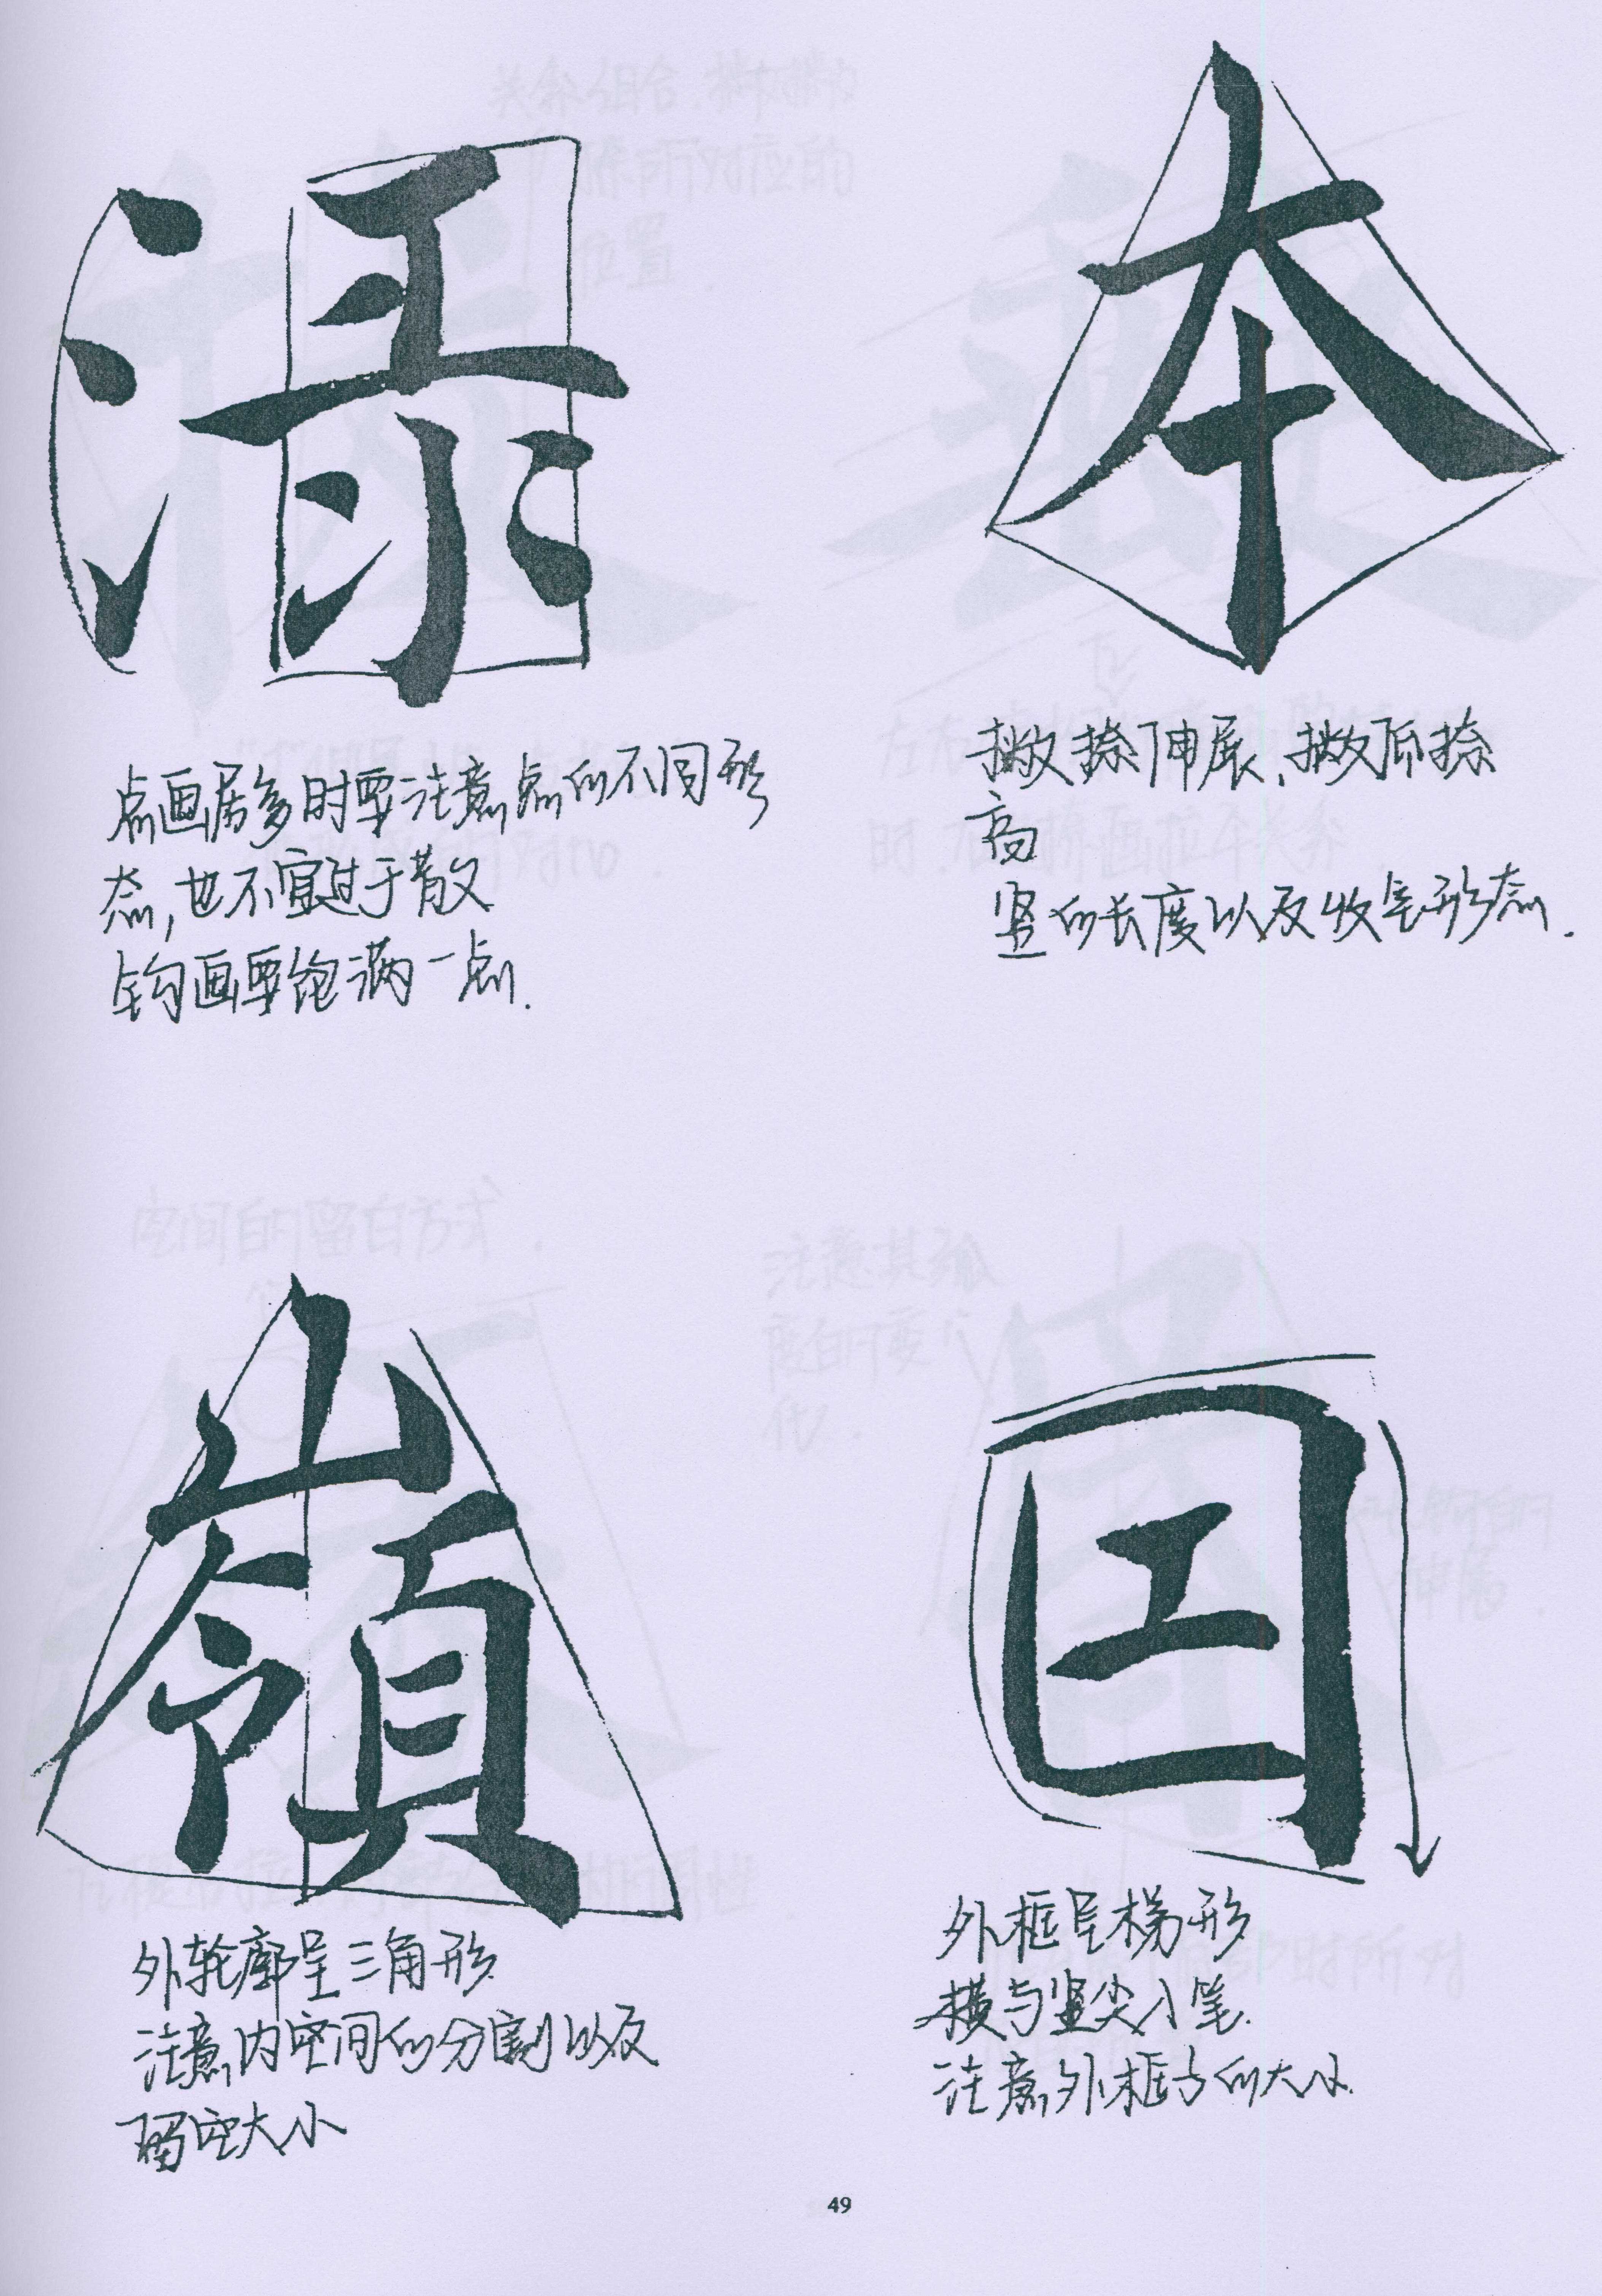 渌
点画居多时要注意点的不同形
态,也不宜过于散
钩画要饱满一点.
本
撇捺伸展、撇低捺
高
竖的长度以及收笔形态.
嶺
外轮廓呈三角形
注意内空间的分割以及
留空大小
外框呈梯形
横与竖尖入笔.
注意外框方的大小.
49